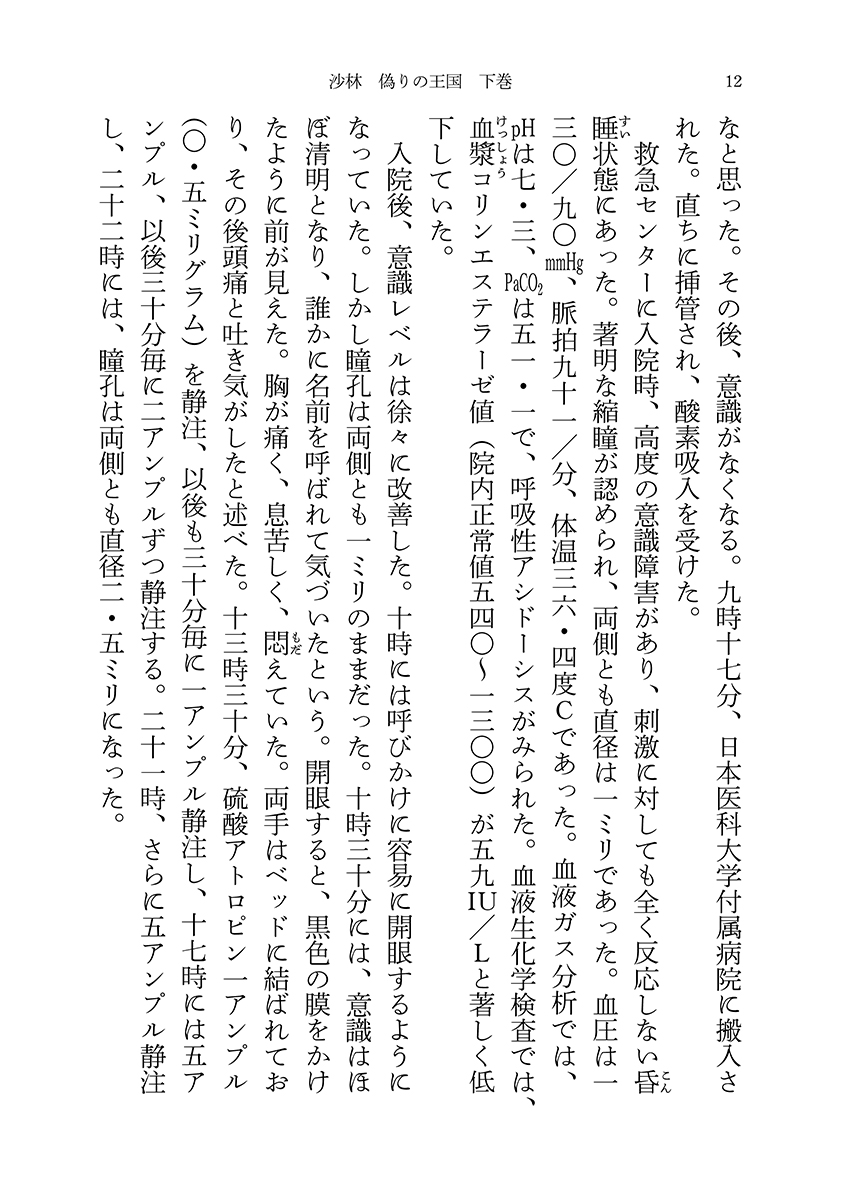 沙林　偽りの王国　下巻
12
なと思った。その後、意識がなくなる。九時十七分、日本医科大学付属病院に搬入さ
れた。直ちに挿管され、酸素吸入を受けた。
　救急センターに入院時、高度の意識障害があり、刺激に対しても全く反応しない昏
こん
睡状態にあった。著明な縮瞳が認められ、両側とも直径は一ミリであった。血圧は一
すい
三〇／九〇mmHg、脈拍九十一／分、体温三六・四度Cであった。血液ガス分析では、
pHは七・三、PaCO₂は五一・一で、呼吸性アシドーシスがみられた。血液生化学検査では、
血漿コリンエステラーゼ値（院内正常値五四〇〜一三〇〇）が五九IU／Lと著しく低
けっしょう
下していた。
　入院後、意識レベルは徐々に改善した。十時には呼びかけに容易に開眼するように
なっていた。しかし瞳孔は両側とも一ミリのままだった。十時三十分には、意識はほ
ぼ清明となり、誰かに名前を呼ばれて気づいたという。開眼すると、黒色の膜をかけ
たように前が見えた。胸が痛く、息苦しく、悶えていた。両手はベッドに結ばれてお
もだ
り、その後頭痛と吐き気がしたと述べた。十三時三十分、硫酸アトロピン一アンプル
（〇・五ミリグラム）を静注、以後も三十分毎に一アンプル静注し、十七時には五ア
ンプル、以後三十分毎に二アンプルずつ静注する。二十一時、さらに五アンプル静注
し、二十二時には、瞳孔は両側とも直径二・五ミリになった。